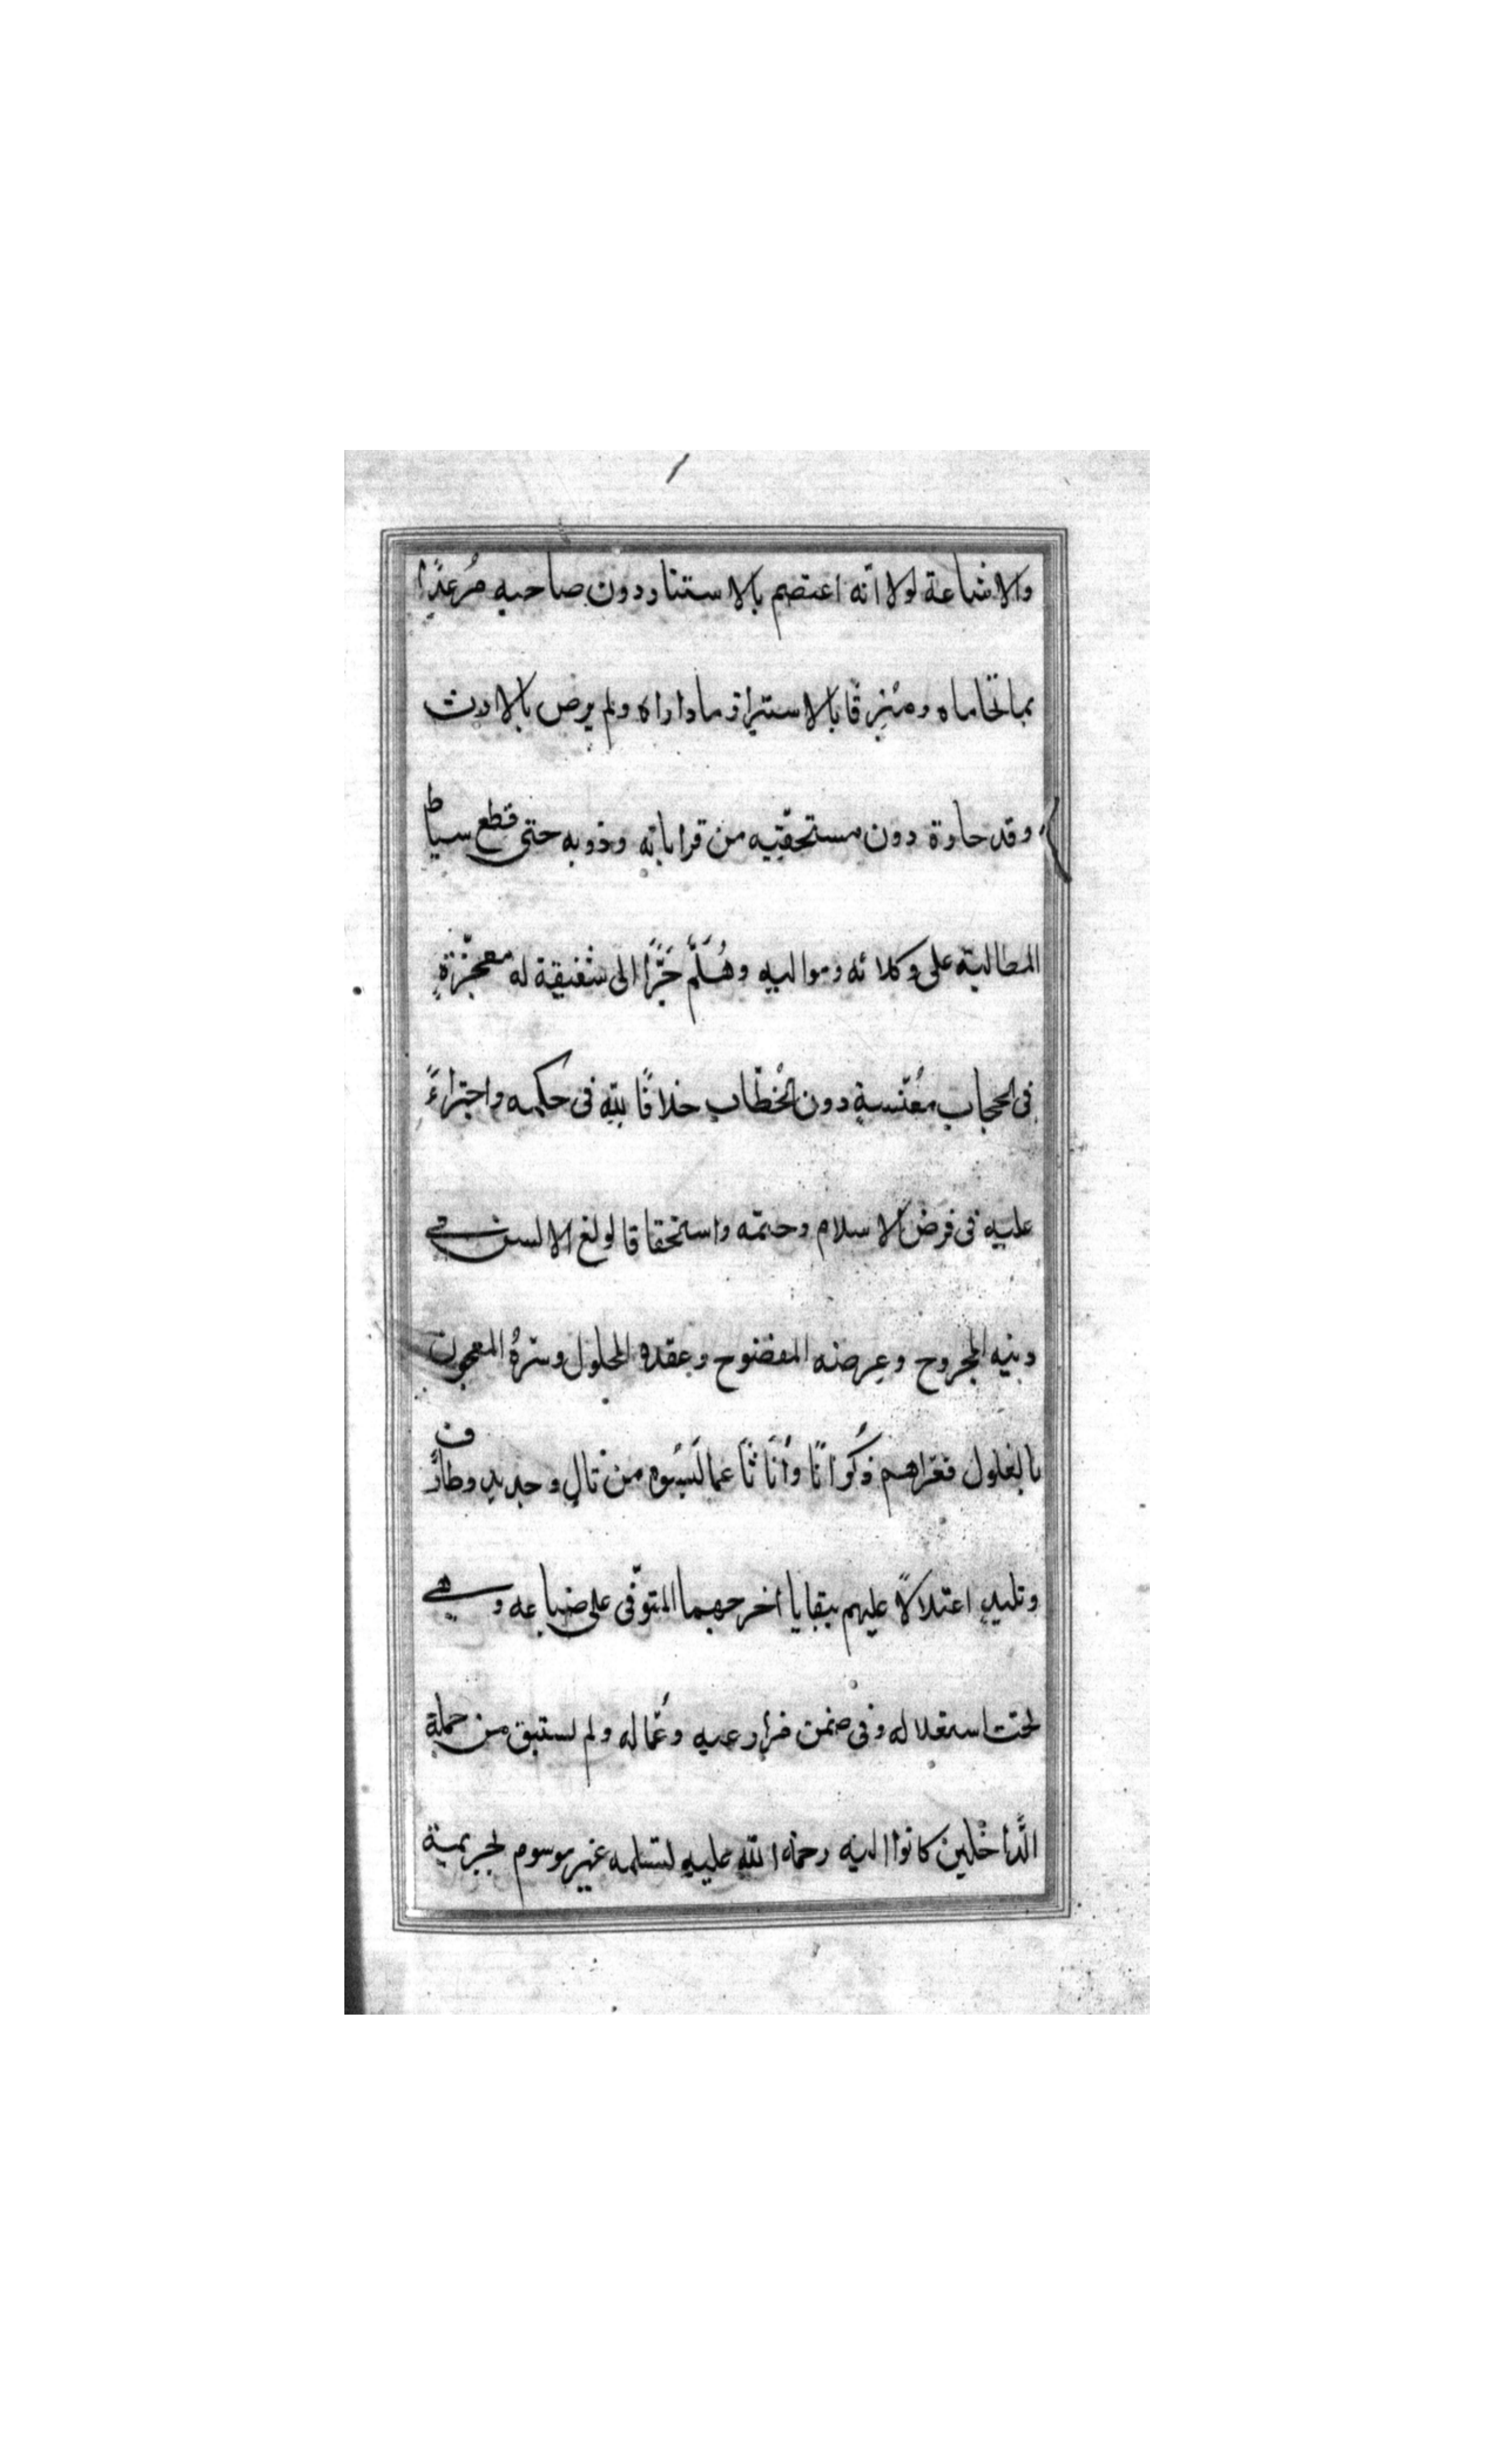 والاشاعة لولا انّه اعتصم بالاستتار دون صاحبه مُرعدًا
بما تخاماه ومُبرِقًا بالاستبراز ما داراه ولم يرض بالارث
وقد حازه دون مستحقّيه من قراباته وذويه حتى قطع سياط
المطالبة على وكلائه ومواليه وهَلُمَّ جَرًّا الى شقيقة له معجزةٍ
فى الحجاب مُعنّسةٍ دون الخُطّاب خلافًا للّه فى حكمه واجتراءً
عليه فى فرض الاسلام وحتمه واستحقاقا لولغ الالسن فى
دينه المجروح وعِرضه المفضوح وعقده المحلول وسرّه المعجون
بالغلول فعراهم ذُكرانًا وأُناثًا عما لَبِسُوه من تالٍ وجديدٍ وطارفٍ
وتليدٍ اعتلالًا عليهم ببقايا اخرجهما المتوّفى على ضياعه وهى
تحت استغلاله وفى ضمن مزارعيه وعُمّاله ولم يستبق من جملة
الدَّاخلين كانوا اليه رحمة اللّه عليه لسلمه غير موسوم بجريمة